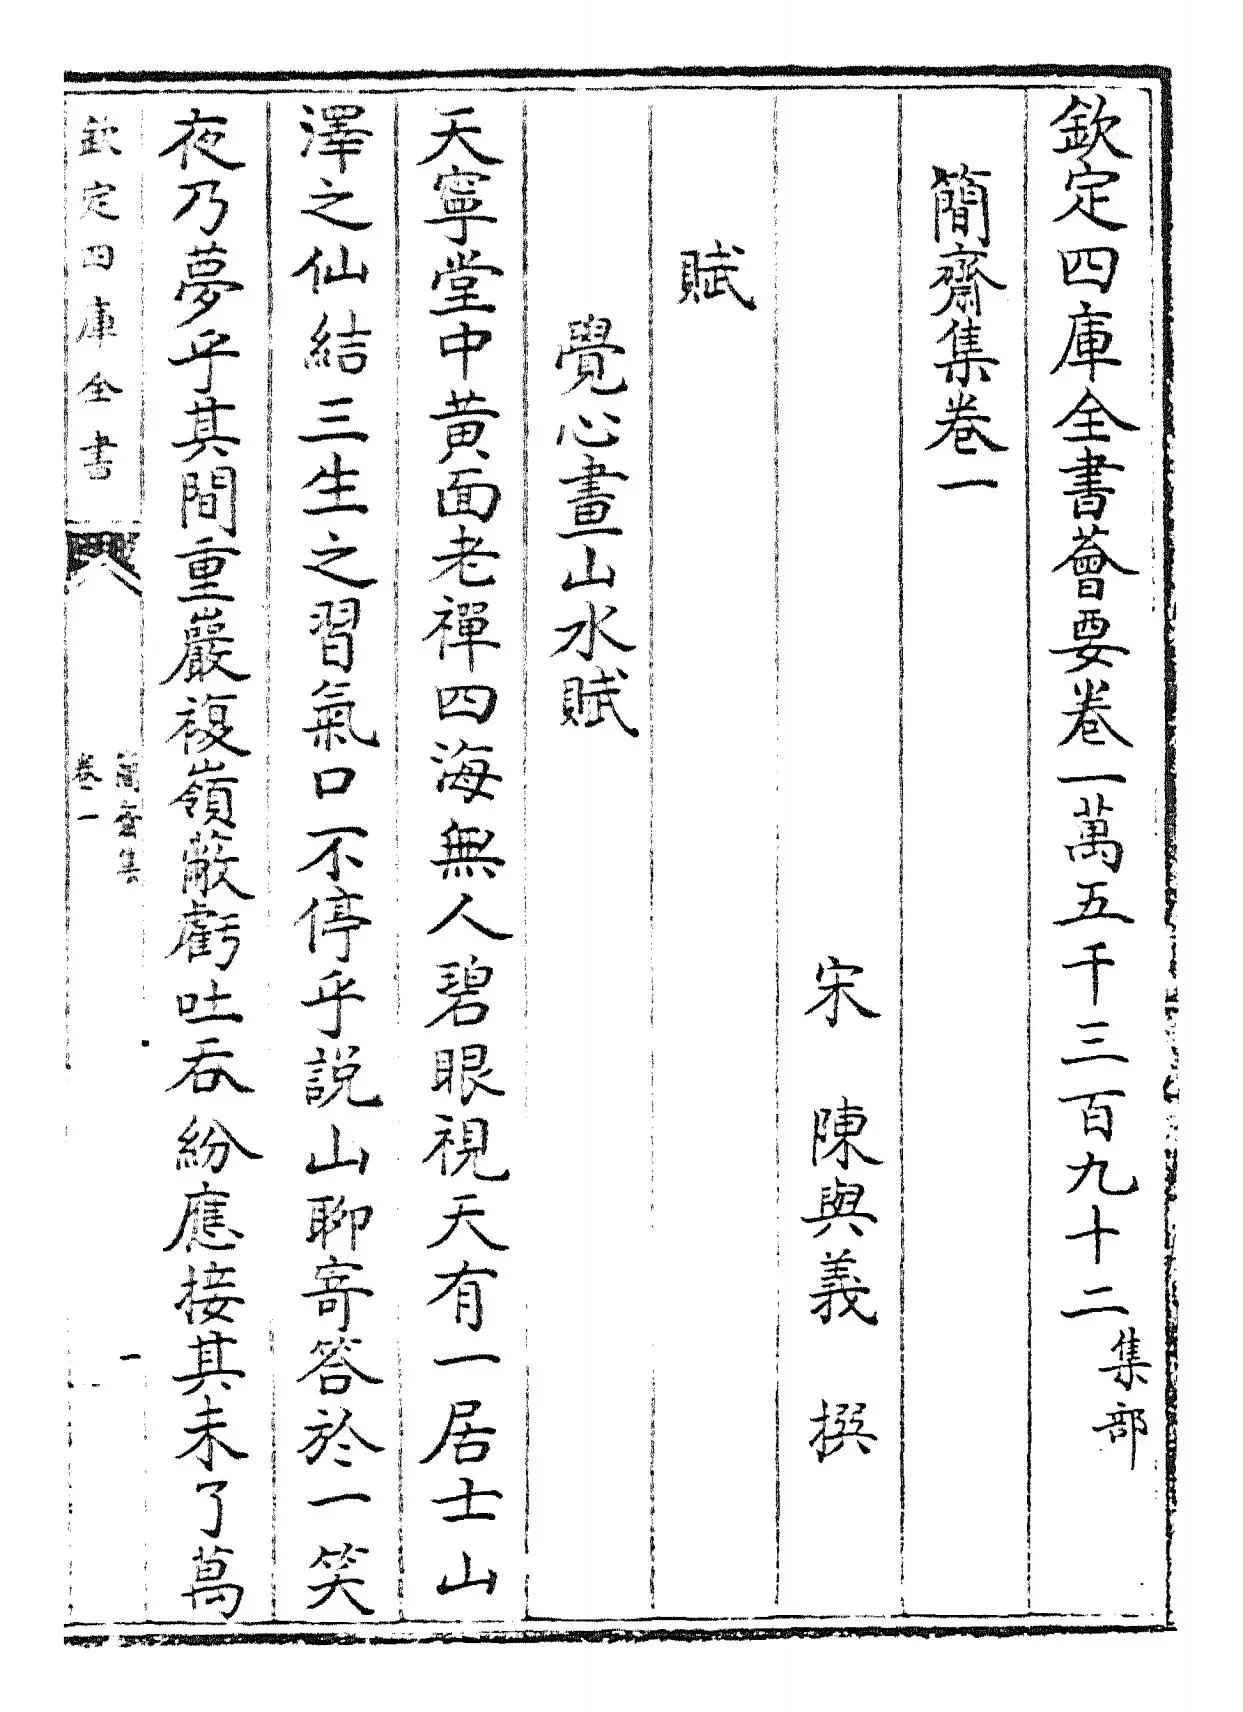 欽定四庫全書薈要卷一萬五千三百九十二集部
簡齋集卷一
宋　陳與義　撰
賦
覺心畫山水賦
天寧堂中黃面老禪四海無人碧眼視天有一居士山
澤之仙結三生之習氣口不停乎說山聊寄答於一笑
夜乃夢乎其間重巖複嶺蔽虧吐吞紛應接其未了萬
欽定四庫全書
簡齋集
卷一
一